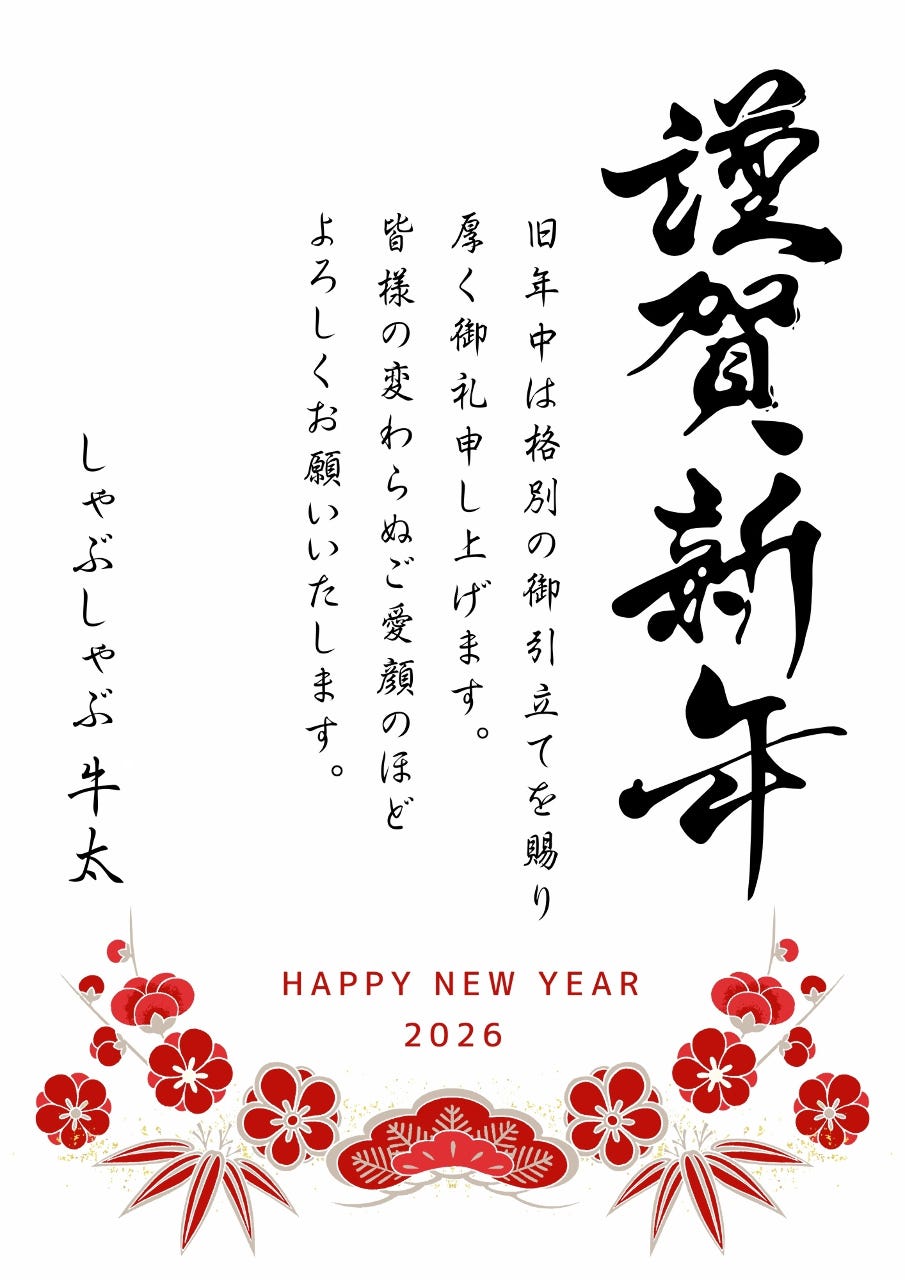 謹賀新年
旧年中は格別の御引立てを賜り
厚く御礼申し上げます。
皆様の変わらぬご愛顔のほど
よろしくお願いいたします。
しゃぶしゃぶ 牛太
HAPPY NEW YEAR
2026